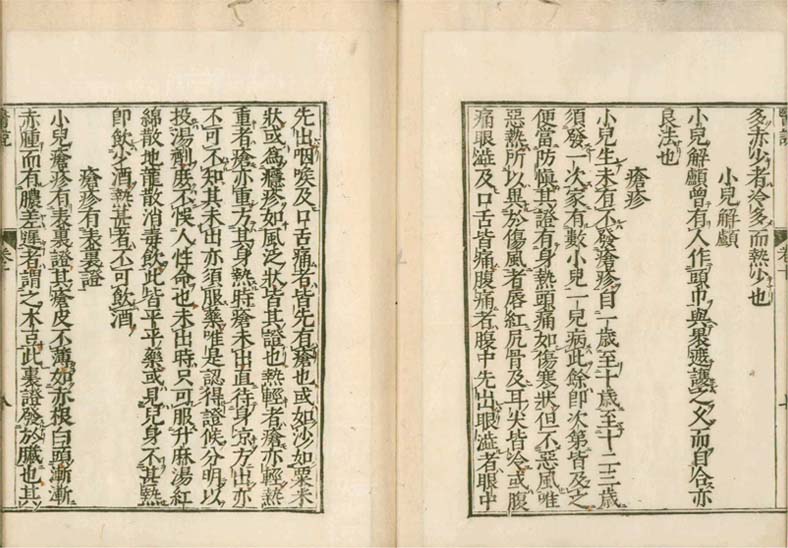 醫說
卷十
多赤少者冷多而熱少也
小兒解顱
小兒解顱曾有人作頭巾與裹遮護之久而自合亦
良法也
瘡疹
小兒生未有不發瘡疹自一歲至十歲至十二三歲
須發一次家有數小兒一兒病此餘即次第皆及之
便當防愼其證有身熱頭痛如傷寒狀但不惡風唯
惡熱所以異於傷風者唇紅尻骨及耳尖皆冷或腹
痛眼澁及口舌皆痛腹痛者腹中先出眼澁者眼中
先出咽喉及口舌痛者皆先有瘡也或如沙如粟米
狀或爲癮疹如風泛狀皆其證也熱輕者瘡亦輕熱
重者瘡亦重方其身熱時瘡未出直待身凉方出亦
不可不知其未出亦須服藥唯是認得證候分明以
投湯劑庶不悞人性命也未出時只可服升麻湯紅
綿散地龍散消毒飲此皆平平藥或見兒身不甚熱
卽飲少酒熱甚者不可飲酒
瘡疹有表裏證
小兒瘡疹有表裏證其瘡皮不薄如赤根白頭漸漸
赤腫而有膿差遲者謂之木此裏證發於臟也其
醫說
卷十
八